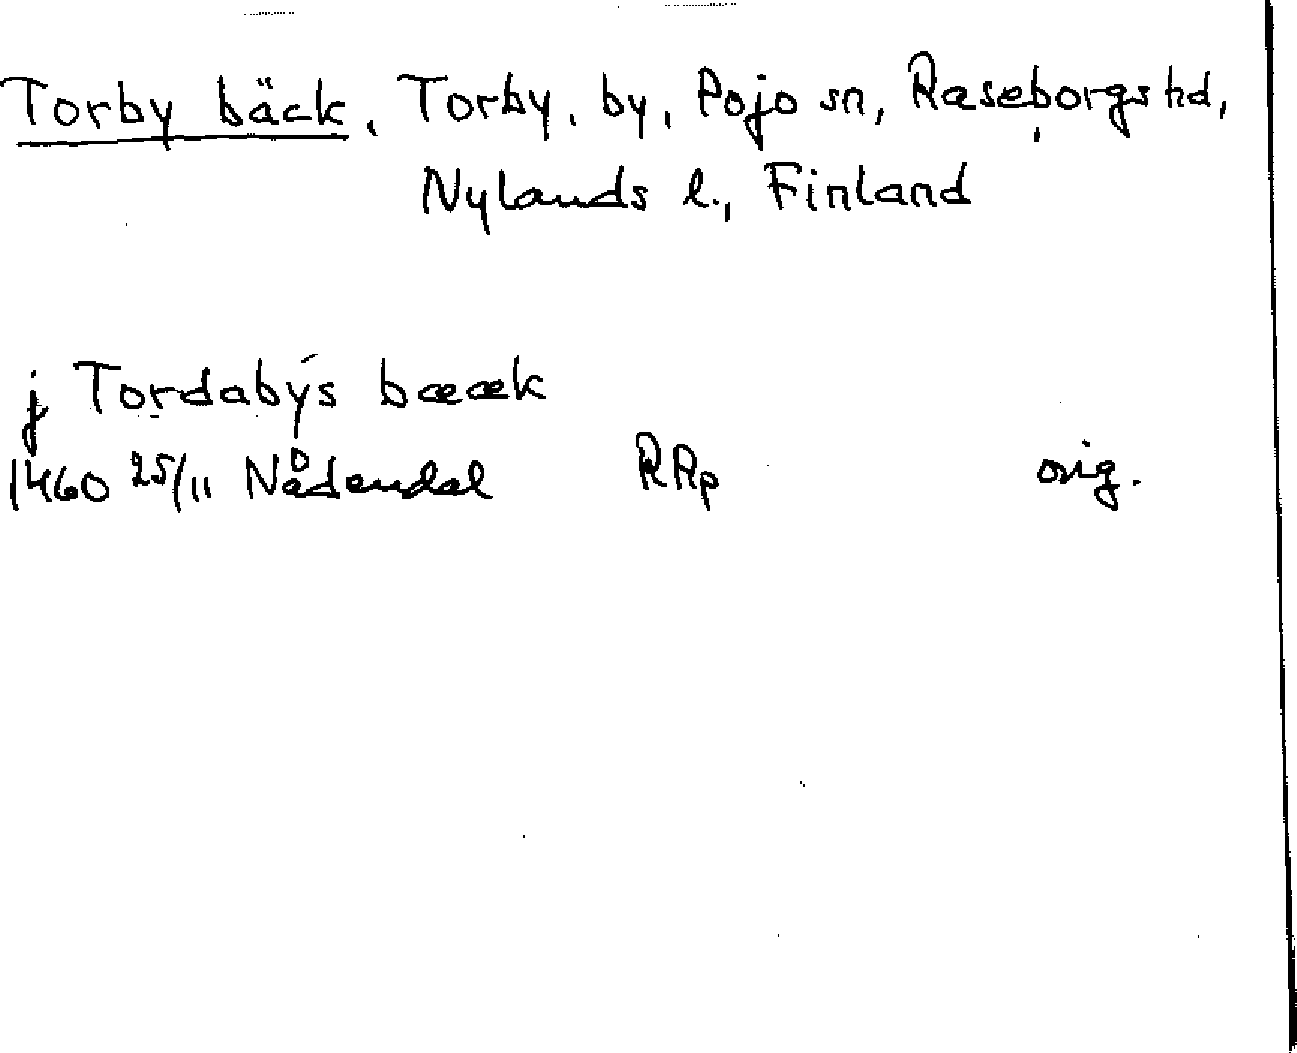 Torby bäck, Torby, by, Pojo sn, Raseborgs hd,
Nylands l., Finland
j Tordabýs bææk
1460 25/11 Nådendal RRp orig.